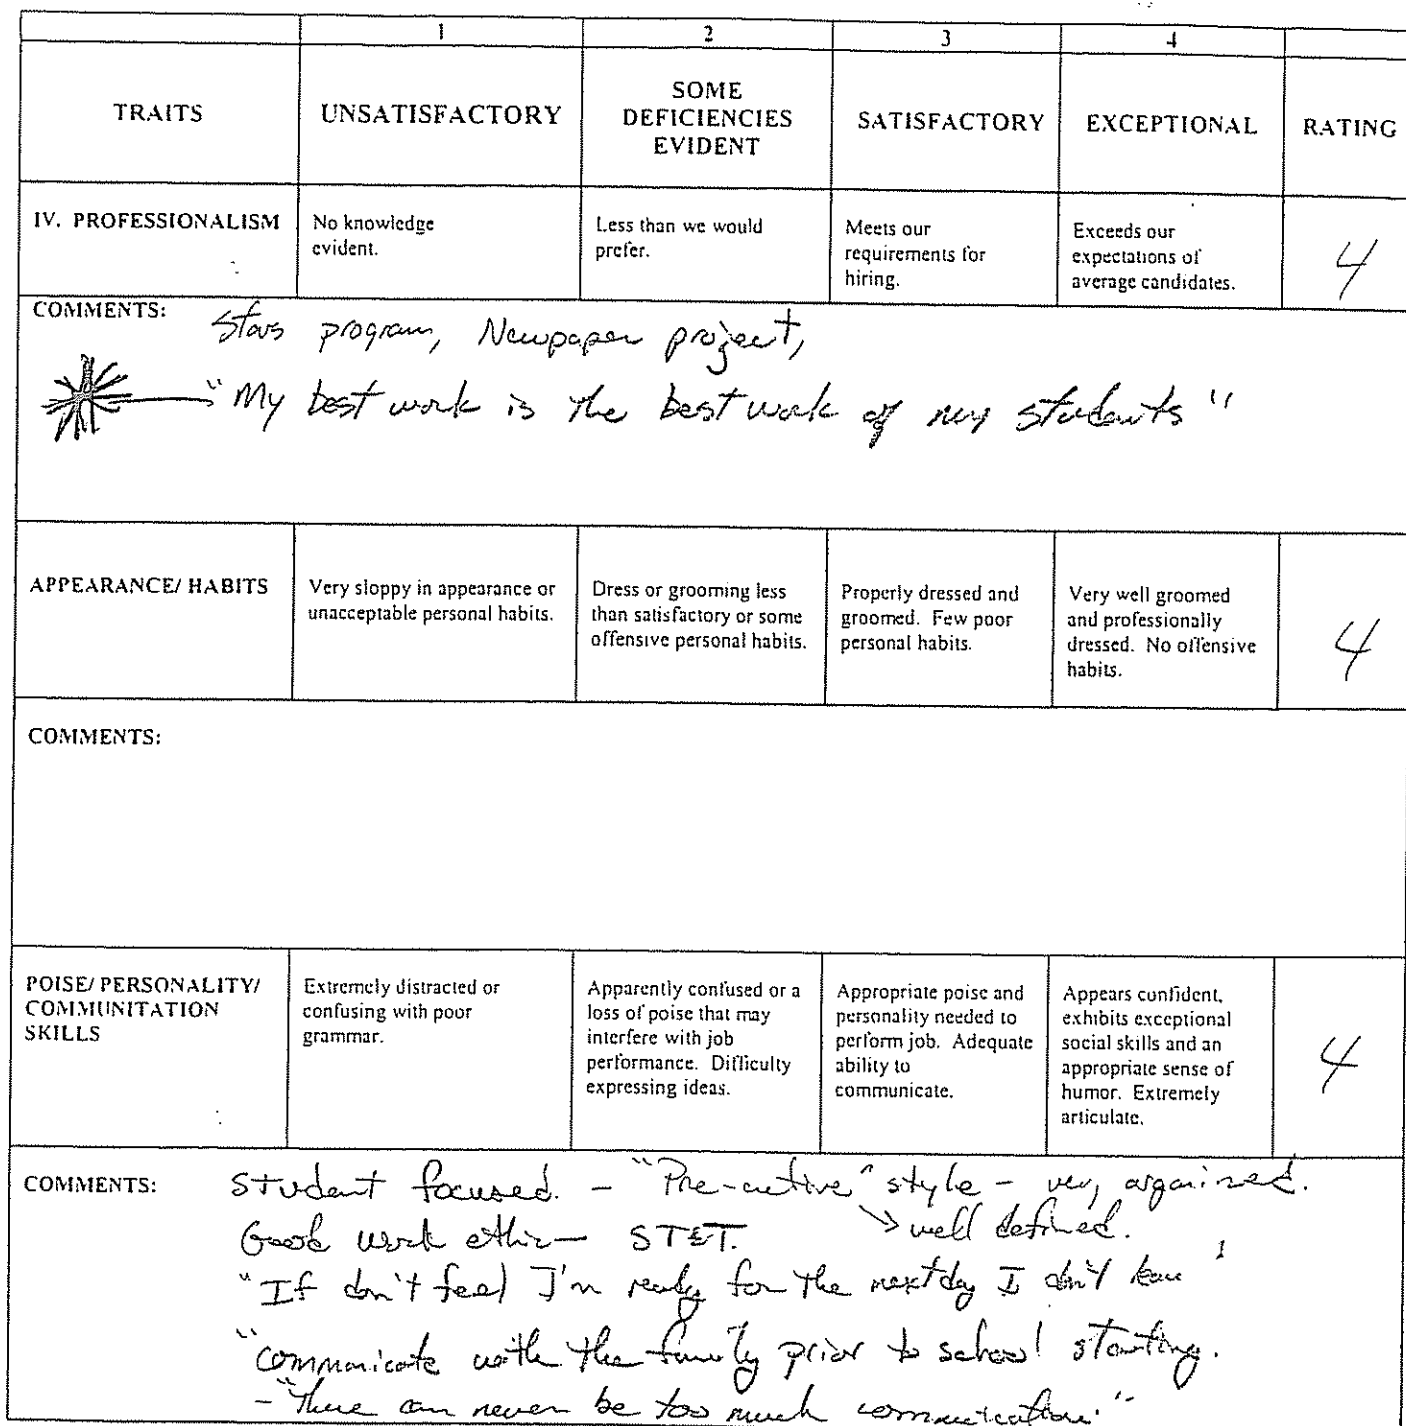 1 2 3 4
TRAITS UNSATISFACTORY SOME DEFICIENCIES EVIDENT SATISFACTORY EXCEPTIONAL RATING
IV. PROFESSIONALISM No knowledge evident. Less than we would prefer. Meets our requirements for hiring. Exceeds our expectations of average candidates. 4
COMMENTS: Stars program, Newpaper project,
"My best work is the best work of my students"
APPEARANCE/ HABITS Very sloppy in appearance or unacceptable personal habits. Dress or grooming less than satisfactory or some offensive personal habits. Properly dressed and groomed. Few poor personal habits. Very well groomed and professionally dressed. No offensive habits. 4
COMMENTS:
POISE/ PERSONALITY/ COMMUNITATION SKILLS Extremely distracted or confusing with poor grammar. Apparently confused or a loss of poise that may interfere with job performance. Difficulty expressing ideas. Appropriate poise and personality needed to perform job. Adequate ability to communicate. Appears confident, exhibits exceptional social skills and an appropriate sense of humor. Extremely articulate. 4
COMMENTS: Student focused. - "Pre-active" style - very organized.
→ well defined.
Good work ethic - 
"If don't feel I'm ready for the next day I don't leave"
"communicate with the family prior to school starting.
- "There can never be too much communication."